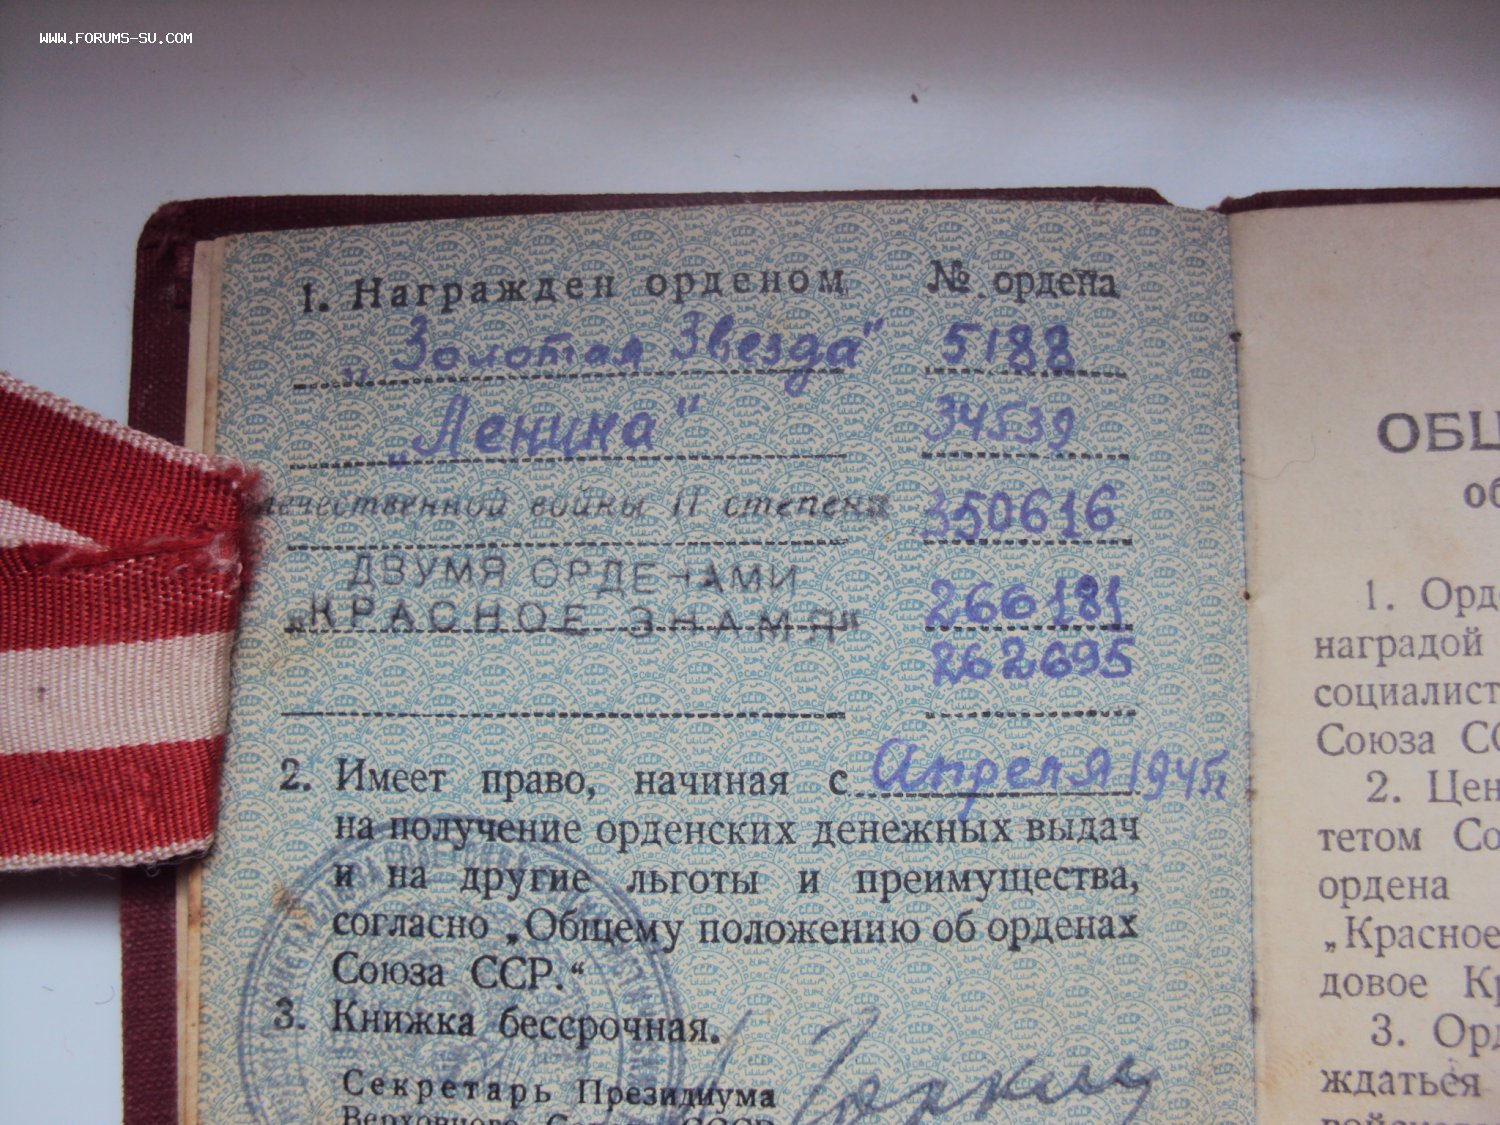 WWW.FORUMS-SU.COM
1. Награжден орденом № ордена
„Золотая Звезда" 5188
„Ленина" 34539
ечественной войны II степени 350616
ДВУМЯ ОРДЕНАМИ
„КРАСНОЕ ЗНАМЯ" 266181
262695
2. Имеет право, начиная с Апреля 1945г
на получение орденских денежных выдач
и на другие льготы и преимущества,
согласно „Общему положению об орденах
Союза ССР.“
3. Книжка бессрочная.
Секретарь Президиума
Верховного Совета СССР
ОБЩ
об
1. Орд
наградой
социалист
Союза СС
2. Цен
тетом Со
ордена
„Красное
довое Кр
3. Орд
ждаться